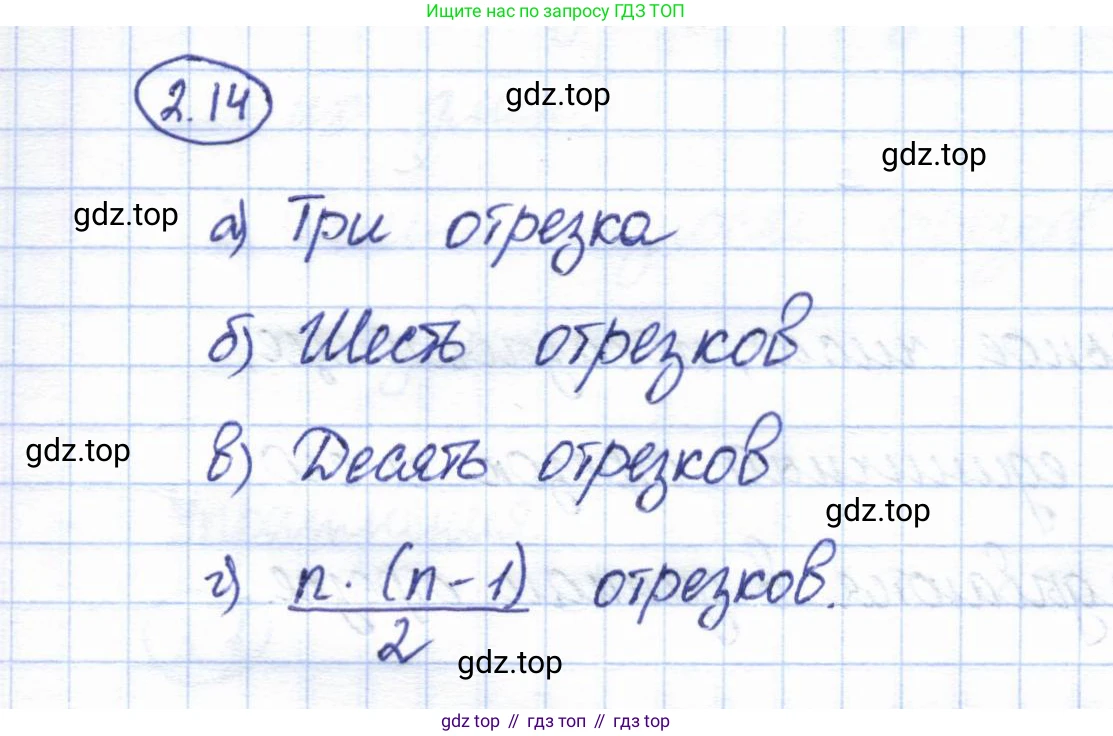 Ищите нас по запросу ГДЗ ТОП
2.14
gdz.top
gdz.top
gdz.top
а) Три отрезка
б) Шесть отрезков
gdz.top
в) Десять отрезков
gdz.top
г) n · (n - 1) / 2 отрезков.
gdz.top
gdz top // гдз топ // гдз top